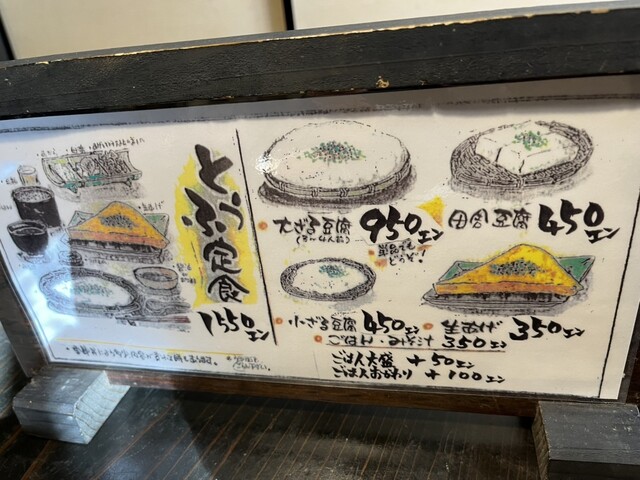 とうふ定食
1550エン
大ざる豆腐
950エン
(3〜4人前)
単品でも
どうぞ!
田舎豆腐 450エン
小ざる豆腐 450エン
生あげ 350エン
ごはん・みそ汁 350エン
ごはん大盛 +50エン
ごはんおかわり +100エン